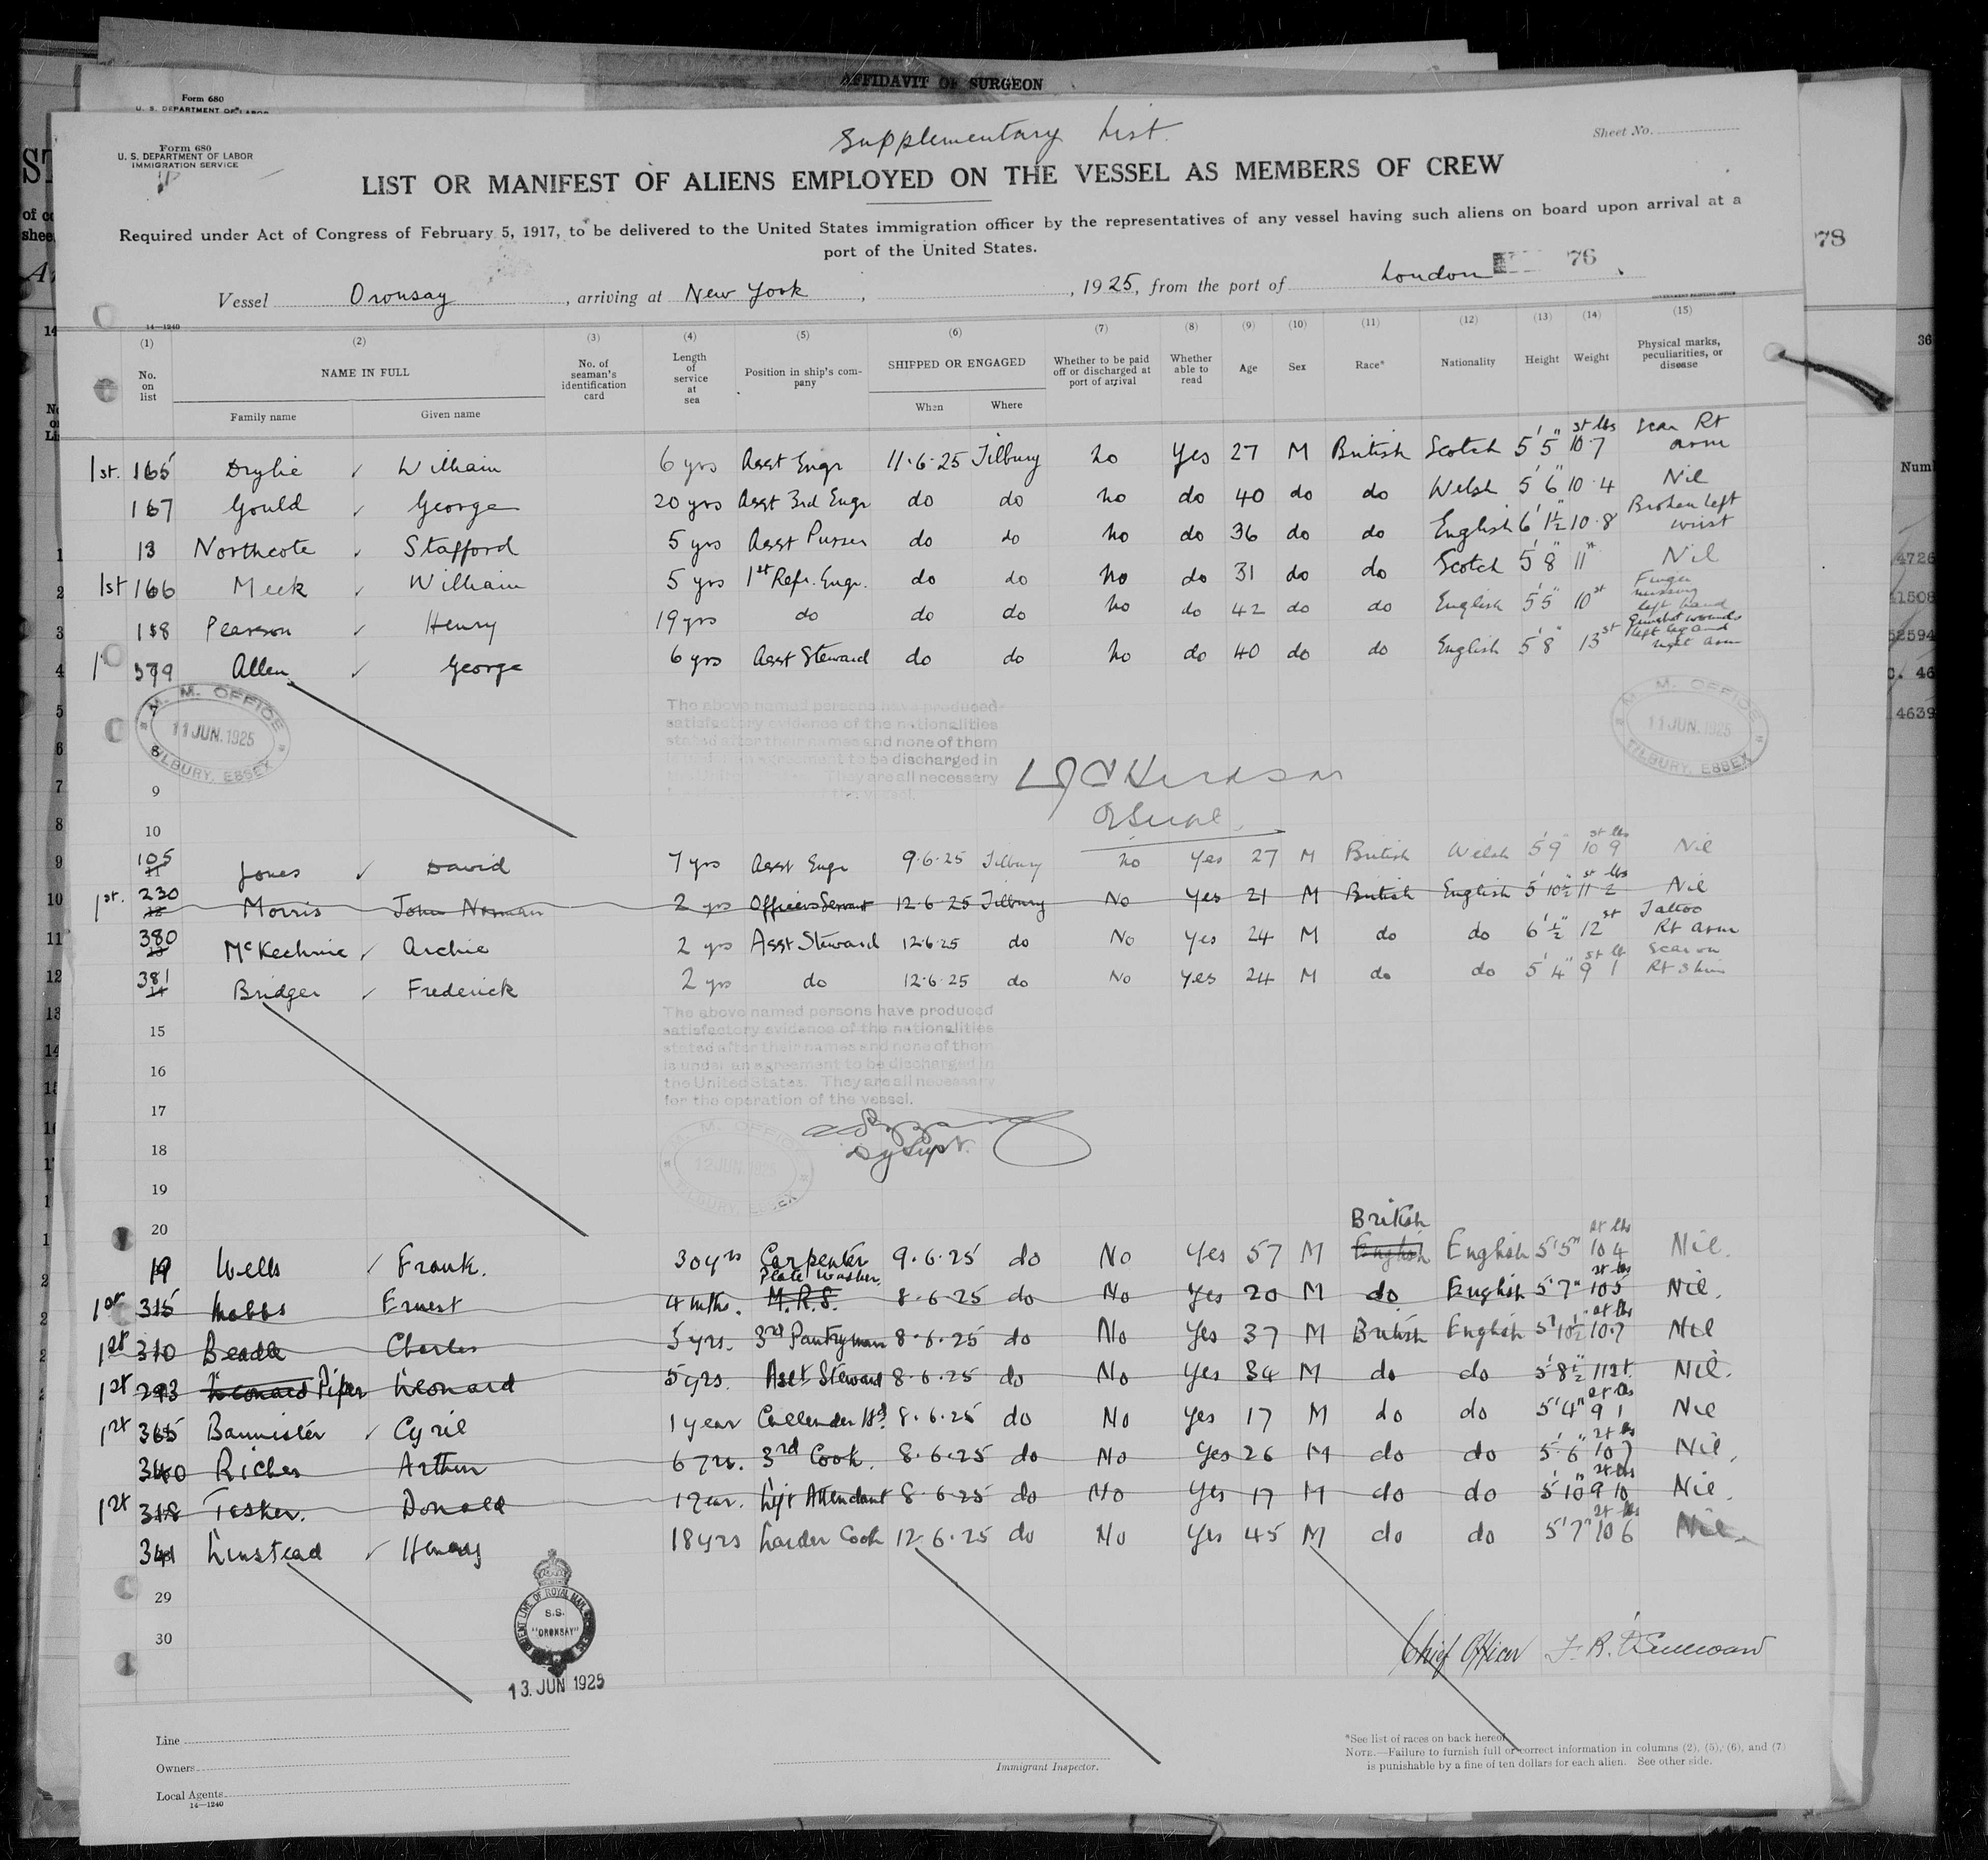 AFFIDAVIT OF SURGEON
Form 680
U. S. DEPARTMENT OF LABOR
Supplementary List.
Sheet No.
Form 680
U. S. DEPARTMENT OF LABOR
IMMIGRATION SERVICE
LIST OR MANIFEST OF ALIENS EMPLOYED ON THE VESSEL AS MEMBERS OF CREW
Required under Act of Congress of February 5, 1917, to be delivered to the United States immigration officer by the representatives of any vessel having such aliens on board upon arrival at a
port of the United States.
78
76
Vessel Oronsay, arriving at New York, 1925, from the port of London
14—1240
(1) (2) (3) (4) (5) (6) (7) (8) (9) (10) (11) (12) (13) (14) (15)
No. on list
NAME IN FULL
Family name Given name
No. of seaman's identification card
Length of service at sea
Position in ship's company
SHIPPED OR ENGAGED
When Where
Whether to be paid off or discharged at port of arrival
Whether able to read
Age
Sex
Race*
Nationality
Height
Weight
Physical marks, peculiarities, or disease
1st. 165 Drylie ✓ William 6 yrs Asst Engr 11.6.25 Tilbury no Yes 27 M British Scotch 5'5" 10 st 7 lbs Scar Rt arm
167 Gould ✓ George 20 yrs Asst 3rd Engr do do no do 40 do do Welsh 5'6" 10.4 Nil
13 Northcote ✓ Stafford 5 yrs Asst Purser do do no do 36 do do English 6'1½ 10.8 Broken left wrist
1st 166 Meek ✓ William 5 yrs 1st Refr. Engr. do do no do 31 do do Scotch 5'8" 11st Nil
158 Pearson ✓ Henry 19 yrs do do do no do 42 do do English 5'5" 10st Finger missing left hand
379 Allen ✓ George 6 yrs Asst Steward do do no do 40 do do English 5'8" 13st Gunshot wounds left leg and right arm
M. M. OFFICE
11 JUN. 1925
TILBURY, ESSEX
The above named persons have produced
satisfactory evidence of the nationalities
stated after their names and none of them
agreement to be discharged in
They are all necessary
vessel.
M. M. OFFICE
11 JUN. 1925
TILBURY, ESSEX
9
10
105 Jones ✓ David 7 yrs Asst Engr 9.6.25 Tilbury no Yes 27 M British Welsh 5'9" 10 st 9 lbs Nil
1st. 230 Morris John Norman 2 yrs Officers Servant 12.6.25 Tilbury No Yes 21 M British English 5'10½ 11 st 2 lbs Nil
380 McKechnie ✓ Archie 2 yrs Asst Steward 12.6.25 do No Yes 24 M do do 6'½" 12st Tattoo Rt arm
381 Bridger ✓ Frederick 2 yrs do 12.6.25 do No Yes 24 M do do 5'4" 9 st 1 lb Scar on Rt Shin
The above named persons have produced
satisfactory evidence of the nationalities
stated after their names and none of them
is under an agreement to be discharged in
the United States. They are all necessary
for the operation of the vessel.
15
16
17
18
19
20
Dy Supt.
M. M. OFFICE
12 JUN. 1925
TILBURY, ESSEX
19 Wells ✓ Frank. 30 yrs Carpenter 9.6.25 do No Yes 57 M English British English 5'5" 10 st 4 lbs Nil.
1st 315 Mobbs Ernest 4 mths. M.R.S. Plate Washer 8.6.25 do No Yes 20 M do English 5'7" 10 st 5 lbs Nil.
1st 310 Beadle Charles 5 yrs. 3rd Pantryman 8.6.25 do No Yes 37 M British English 5'10½" 10 st 7 lbs Nil
1st 293 Leonard Piper Leonard 5 yrs. Asst Steward 8.6.25 do No Yes 34 M do do 5'8½" 11st. Nil.
1st 365 Bannister ✓ Cyril 1 year 8.6.25 do No Yes 17 M do do 5'4" 9 st 1 lbs Nil
340 Riches Arthur 6 yrs. 3rd Cook. 8.6.25 do No Yes 26 M do do 5'6" 10 st 7 lbs Nil.
1st 318 Tasker. Donald 1 year. Lift Attendant 8.6.25 do No Yes 17 M do do 5'10" 9 st 10 lbs Nil.
341 Linstead ✓ Henry 18 yrs Larder Cook 12.6.25 do No Yes 45 M do do 5'7" 10 st 6 lbs Nil.
29
30
ORIENT LINE OF ROYAL MAIL
S.S.
"ORONSAY"
13. JUN 1925
Chief Officer
Line
Owners
Local Agents
14—1240
Immigrant Inspector.
*See list of races on back hereof.
NOTE.—Failure to furnish full or correct information in columns (2), (5), (6), and (7)
is punishable by a fine of ten dollars for each alien. See other side.